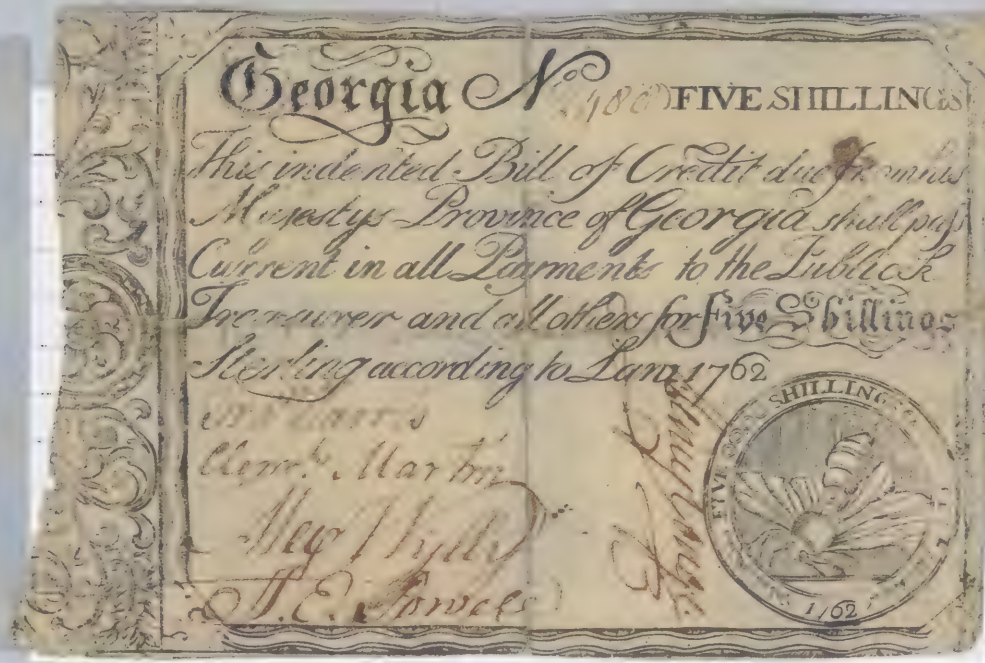 Georgia No FIVE SHILLINGS
This indented Bill of Credit due from his
Majestys Province of Georgia shall pass
Current in all Payments to the Publick
Treasurer and all others for Five Shillings
Sterling according to Law 1762
Clemt. Martin
N. E. Powell
SHILLING
FIVE
1762